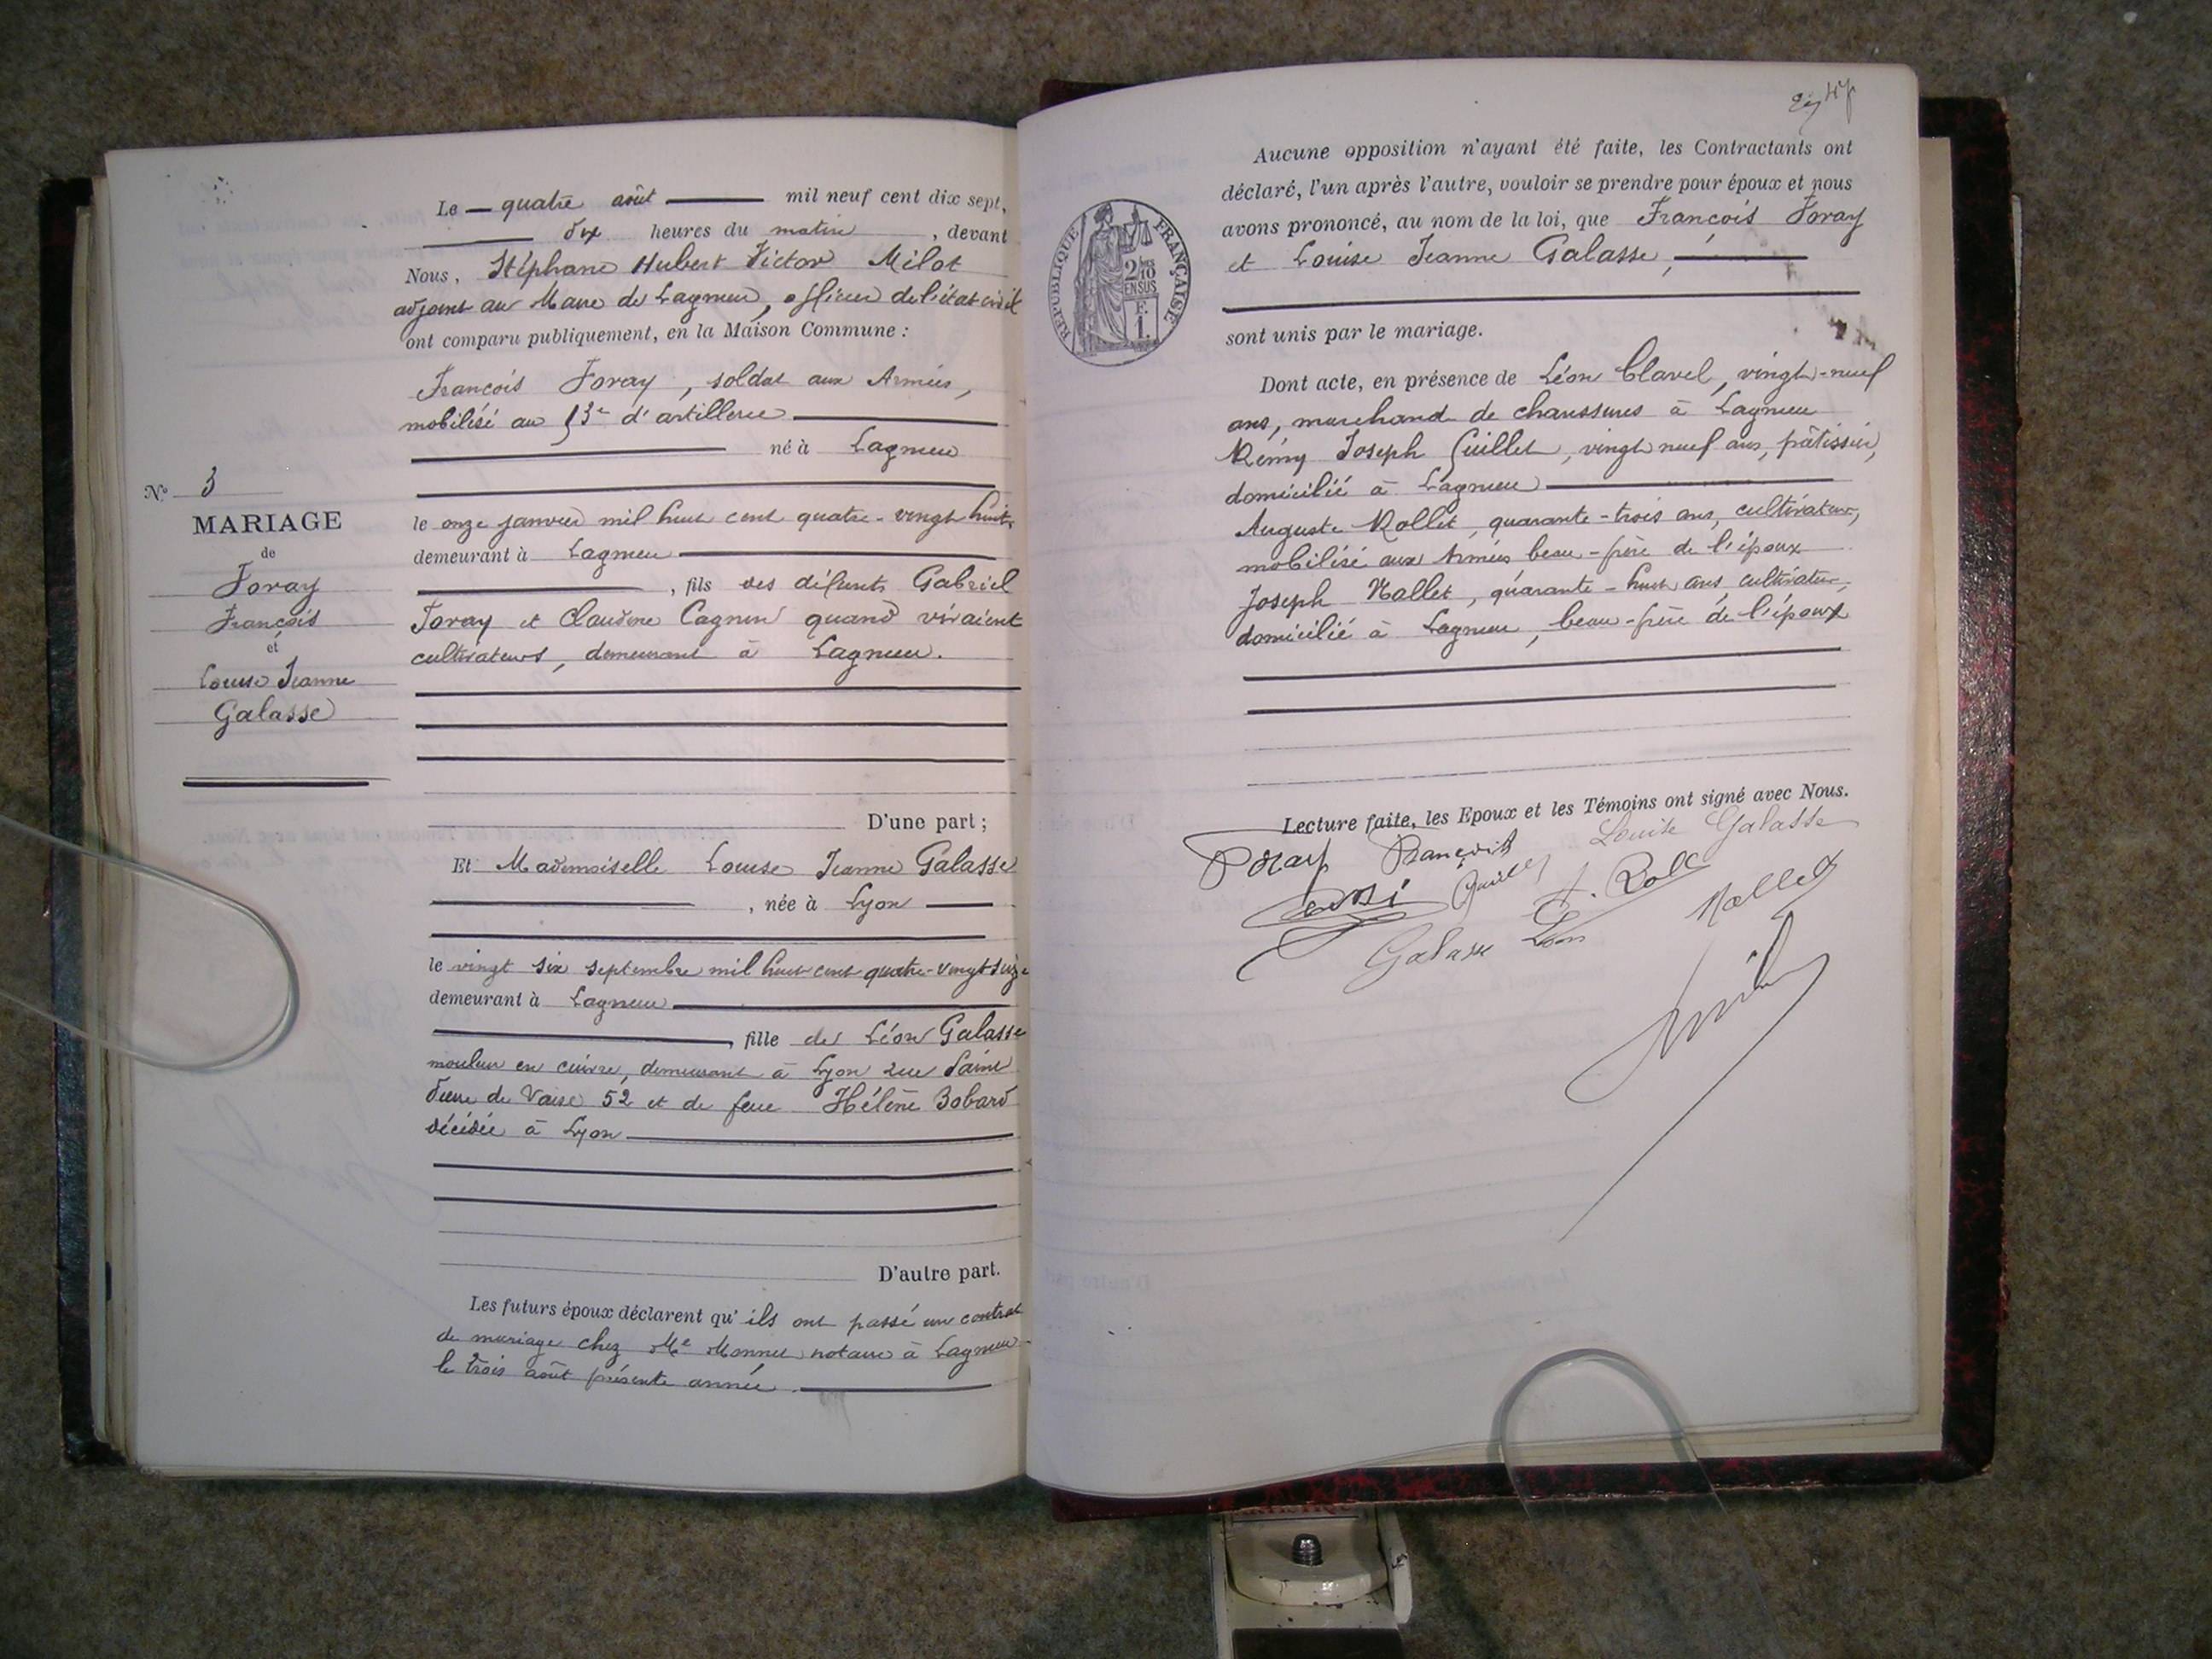 Le quatre août mil neuf cent dix sept,
dix heures du matin, devant
Nous, Stéphane Hubert Victor Milot
adjoint au Maire de Lagnieu, officier de l'état civil
ont comparu publiquement, en la Maison Commune :
François Foray, soldat aux Armées,
mobilisé au 13e d'artillerie
né à Lagnieu
le onze janvier mil huit cent quatre-vingt huit,
demeurant à Lagnieu
, fils des défunts Gabriel
Foray et Claudine Cagnin quand vivaient
cultivateurs, demeurant à Lagnieu.
D'une part ;
Nº 3
MARIAGE
de
Foray
François
et
Louise Jeanne
Galasse
Et Mademoiselle Louise Jeanne Galasse
, née à Lyon
le vingt six septembre mil huit cent quatre-vingt seize
demeurant à Lagnieu
, fille de Léon Galasse
mouleur en cuivre, demeurant à Lyon rue Saint
Pierre de Vaise 52 et de feue Hélène Bobard
décédée à Lyon
D'autre part.
Les futurs époux déclarent qu'ils ont passé un contrat
de mariage chez Me Monnet notaire à Lagnieu
le trois août présente année.
47
Aucune opposition n'ayant été faite, les Contractants ont
déclaré, l'un après l'autre, vouloir se prendre pour époux et nous
avons prononcé, au nom de la loi, que François Foray
et Louise Jeanne Galasse,
sont unis par le mariage.
RÉPUBLIQUE FRANÇAISE
2/10 EN SUS
F. 1.
Dont acte, en présence de Léon Clavel, vingt-neuf
ans, marchand de chaussures à Lagnieu
Rémy Joseph Guillet, vingt neuf ans, pâtissier,
domicilié à Lagnieu
Auguste Rollet, quarante-trois ans, cultivateur,
mobilisé aux Armées beau-frère de l'époux
Joseph Mallet, quarante-huit ans, cultivateur,
domicilié à Lagnieu, beau-frère de l'époux
Lecture faite, les Epoux et les Témoins ont signé avec Nous.
Louise Galasse
Foray François
Guillet
Mallet
Galasse Léon